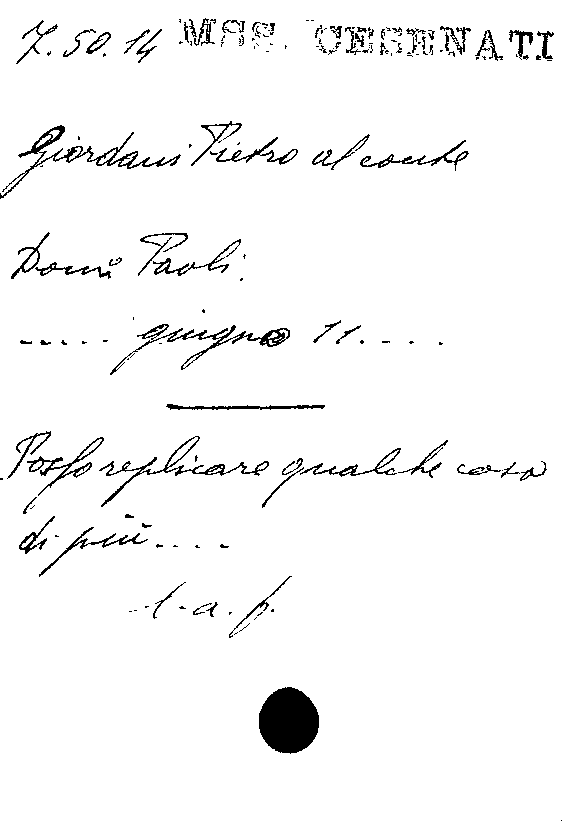 7.50.14 MSS. CESENATI
Giordani Pietro al conte
Domº Paoli.
..... giugno 11....
Posso replicare qualche cosa
di più....
l.a.f.